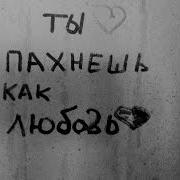 ТЫ
ПАХНЕШЬ
КАК
ЛЮБОВЬ